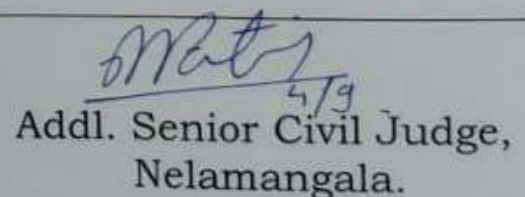 4/9
Addl. Senior Civil Judge,
Nelamangala.